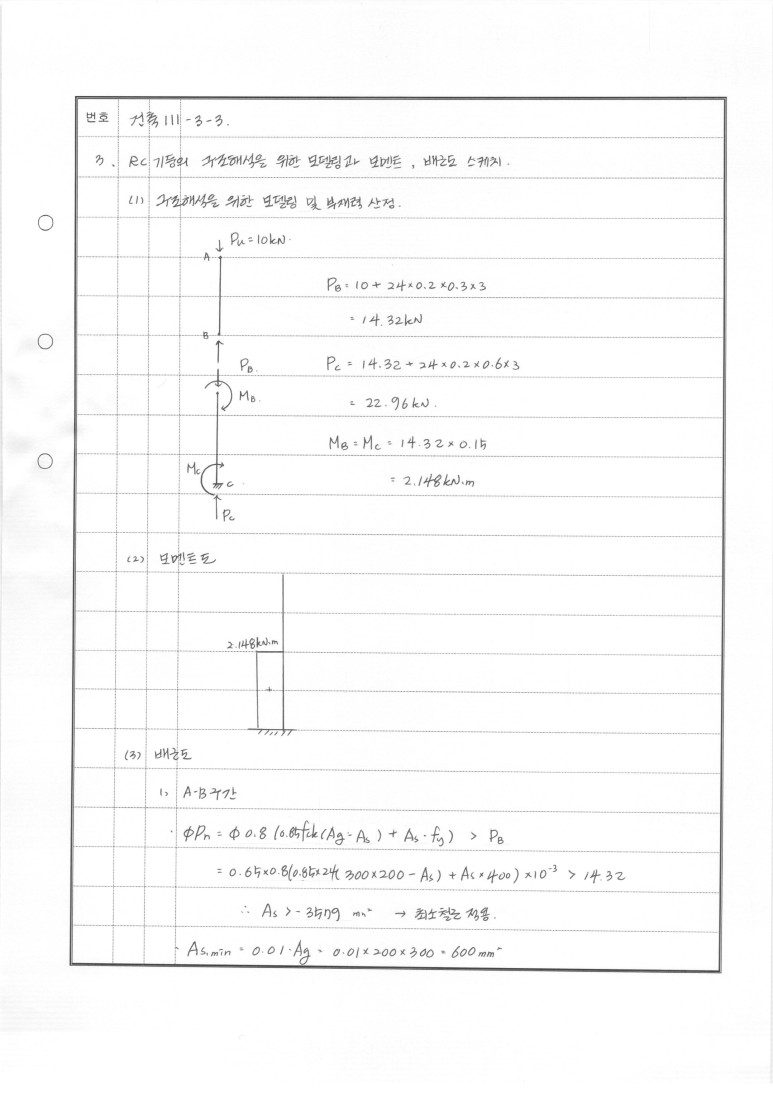 번호 건축 III-3-3.
3. RC 기둥의 구조해석을 위한 모델링과 모멘트, 배근도 스케치.
(1) 구조해석을 위한 모델링 및 부재력 산정.
Pu = 10kN.
A
PB = 10 + 24×0.2×0.3×3
= 14.32kN
B
PB. Pc = 14.32 + 24×0.2×0.6×3
MB. = 22.96kN.
MB = Mc = 14.32×0.15
Mc
C = 2.148kN.m
Pc
(2) 모멘트도
2.148kN.m
+
(3) 배근도
1) A-B구간
· ΦPn = Φ 0.8 (0.85fck(Ag - As) + As·fy) > PB
= 0.65×0.8(0.85×24(300×200 - As) + As×400)×10⁻³ > 14.32
∴ As > -3579 mm² → 최소철근 적용.
· As,min = 0.01·Ag = 0.01×200×300 = 600mm²